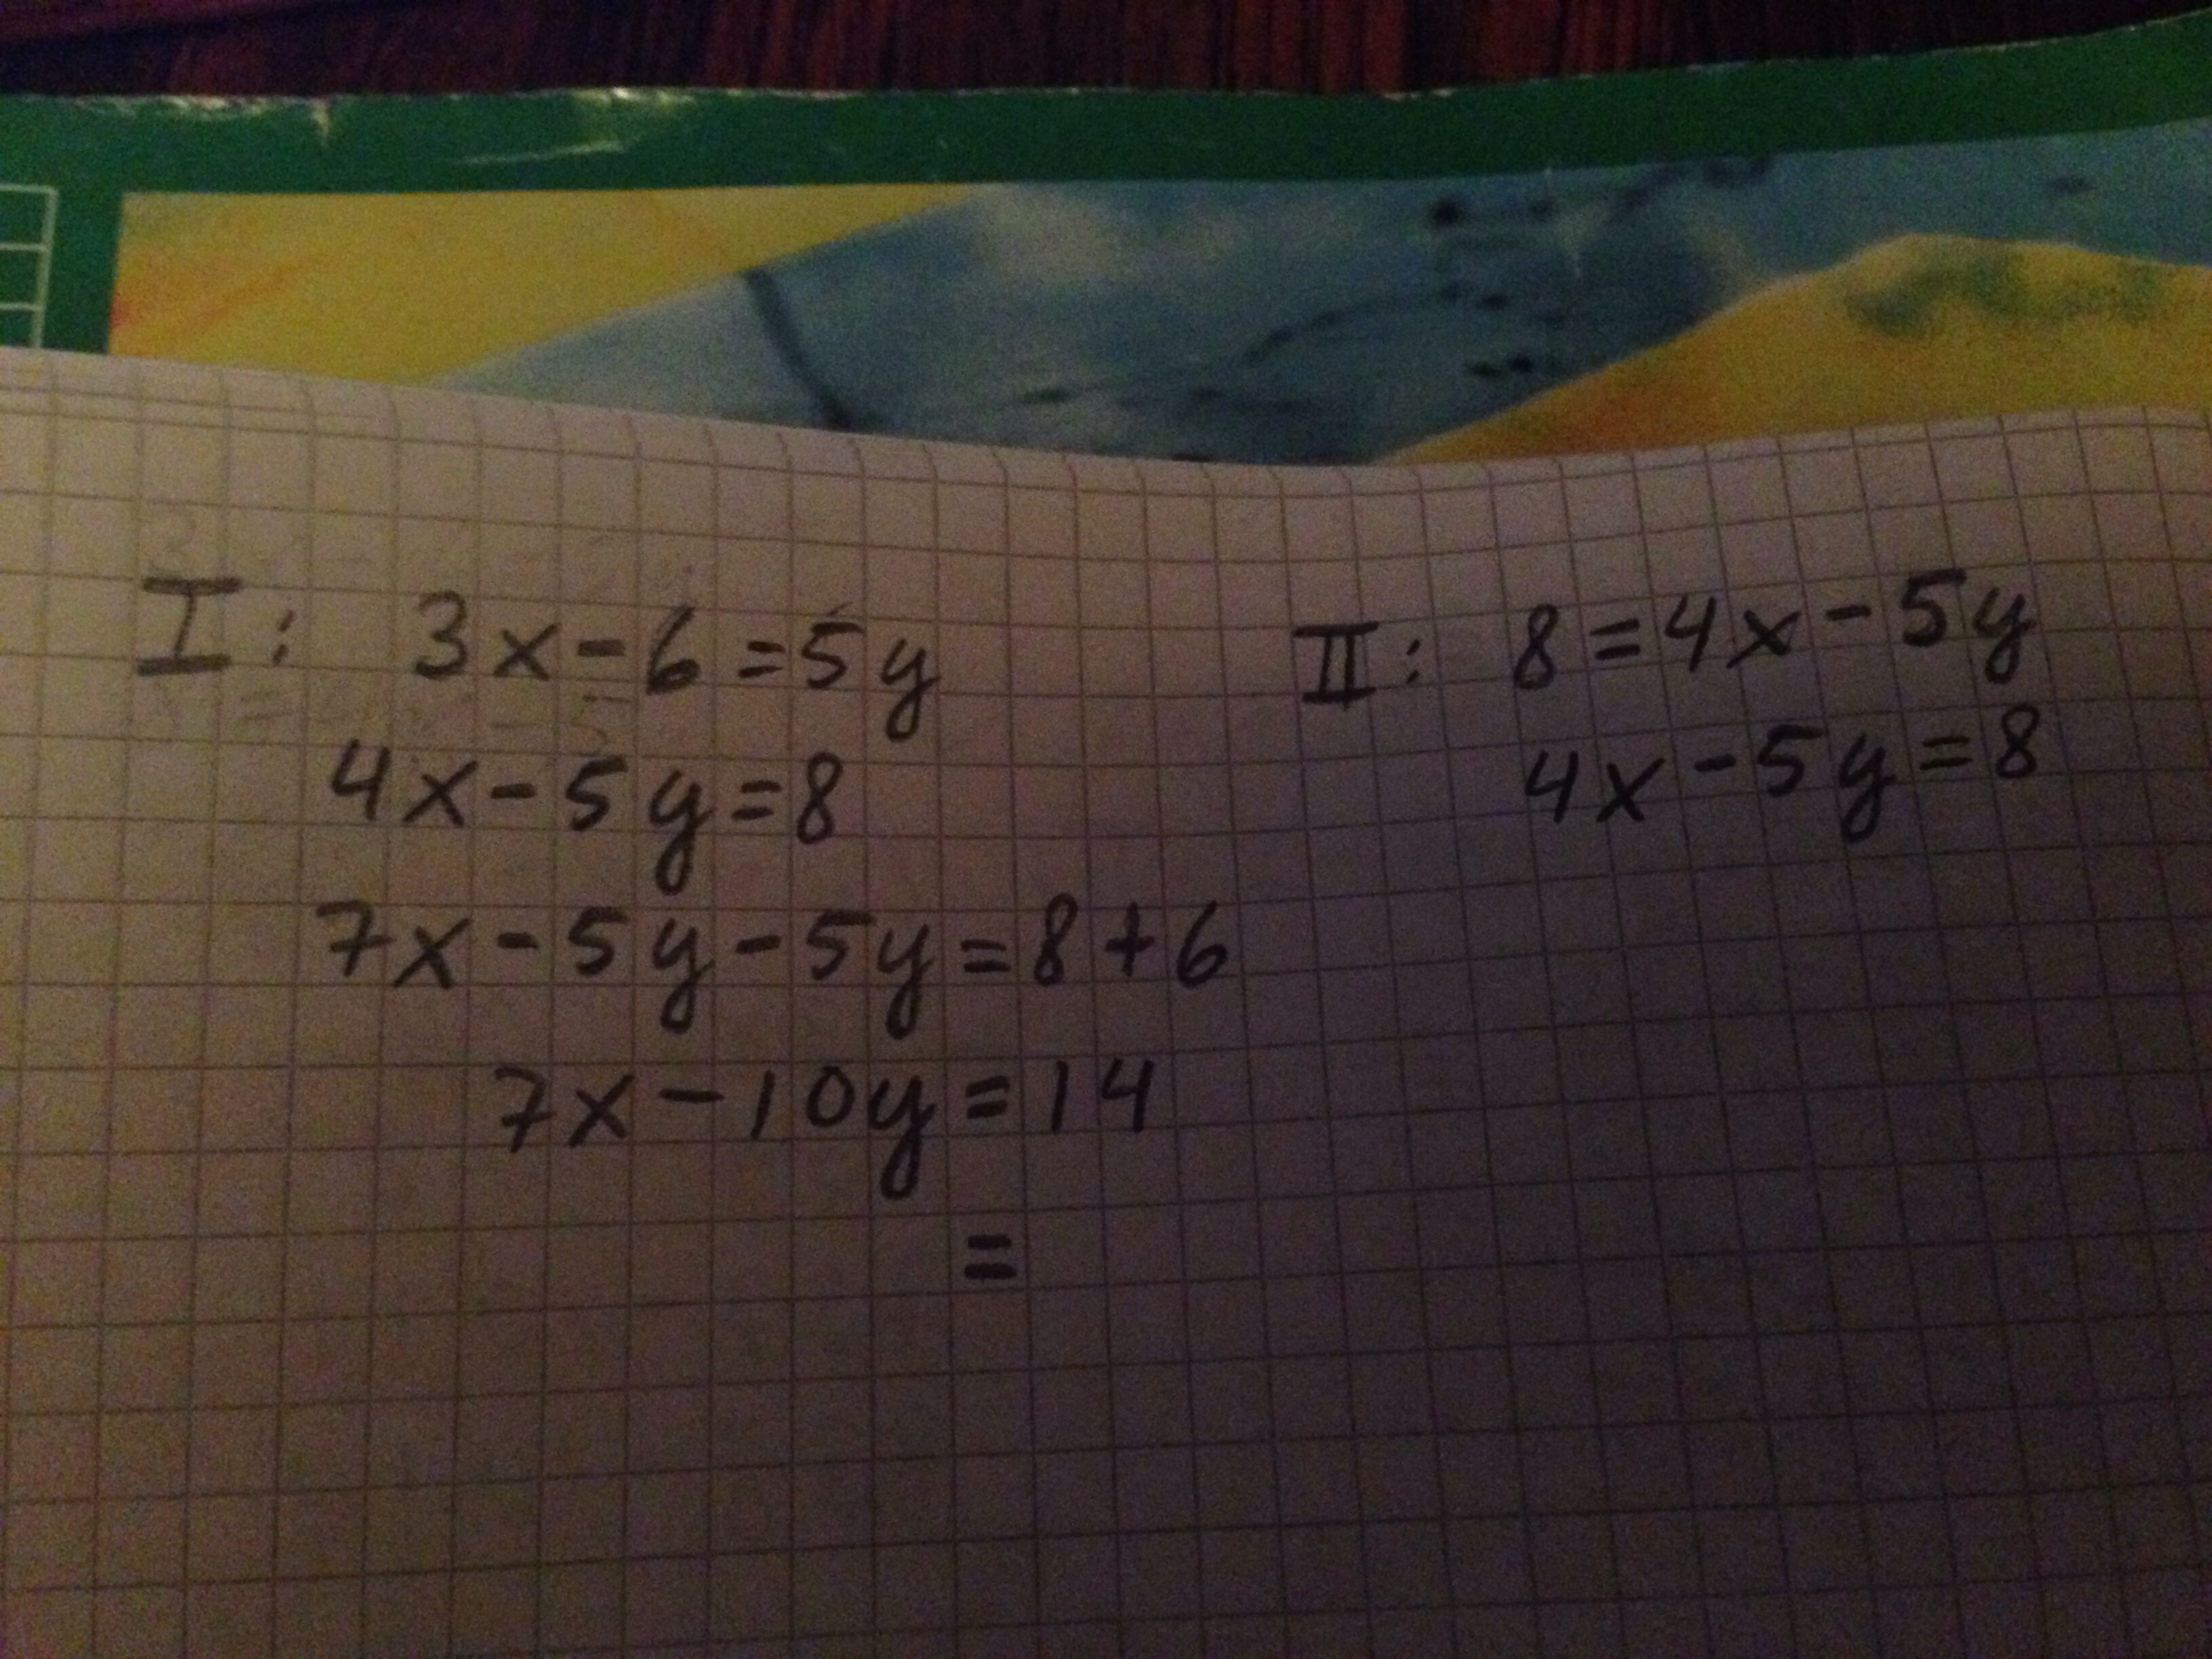 I: 3x-6=5y
4x-5y=8
7x-5y-5y=8+6
7x-10y=14
=
II: 8=4x-5y
4x-5y=8